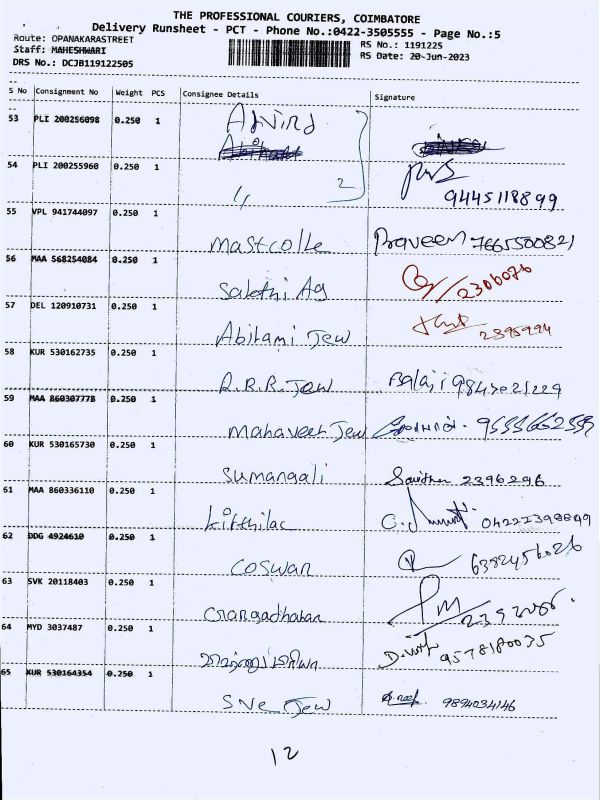 THE PROFESSIONAL COURIERS, COIMBATORE
Delivery Runsheet - PCT - Phone No.:0422-3505555 - Page No.:5
Route: OPANAKARASTREET
Staff: MAHESHWARI
DRS No.: DCJB119122505
RS No.: 1191225
RS Date: 20-Jun-2023
S No Consignment No Weight PCS Consignee Details Signature
53 PLI 200256098 0.250 1
54 PLI 200255960 0.250 1 〃 2 9445118899
55 VPL 941744097 0.250 1 Mastcolle Praveen 7665500821
56 MAA 568254084 0.250 1 Sakthi Ag 2306076
57 DEL 120910731 0.250 1 Abilami Jew 2395994
58 KUR 530162735 0.250 1 R.R.R. Jew Balaji
59 MAA 860307778 0.250 1 Mahaveer Jew
60 KUR 530165730 0.250 1 Sumangali 2396296
61 MAA 860336110 0.250 1 Kirthilac 04222398899
62 DDG 4924610 0.250 1 COSWan 6382456026
63 SVK 20118403 0.250 1
64 MYD 3037487 0.250 1 9578180035
65 KUR 530164354 0.250 1 SNe Jew 9894034146
12